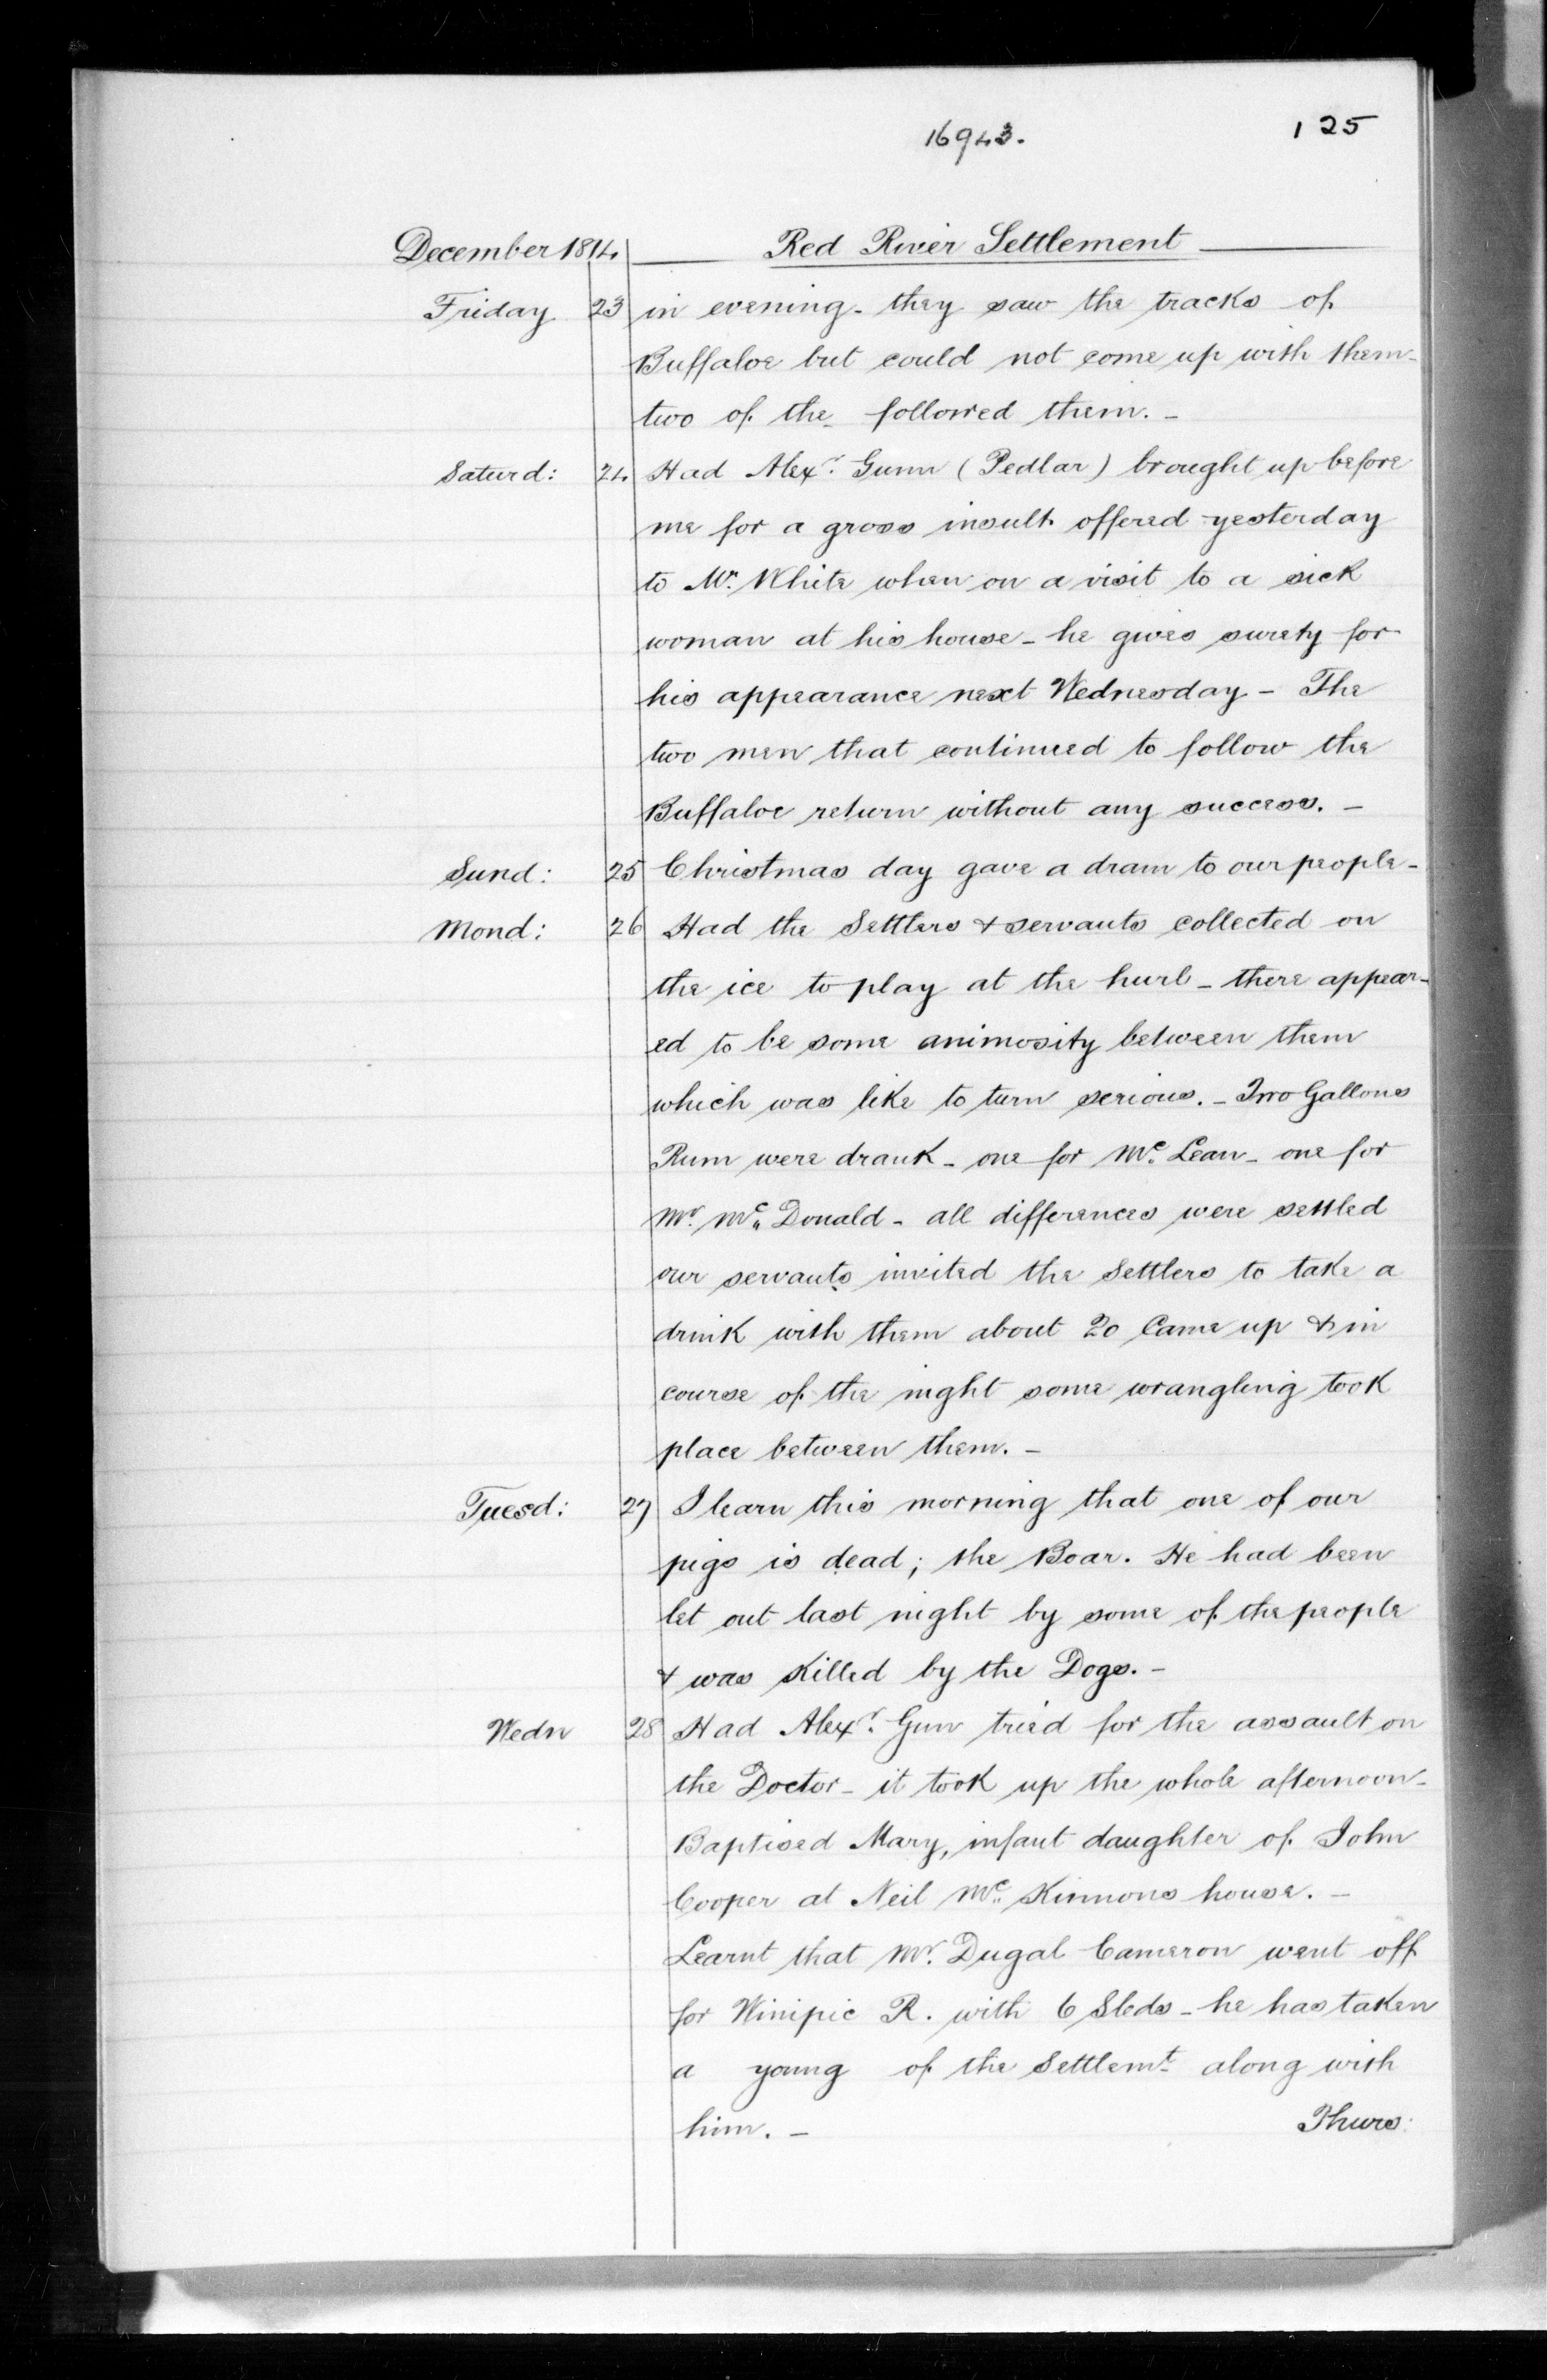 16943.
125
December 1814 Red River Settlement
Friday 23 in evening - they saw the tracks of
Buffaloe but could not come up with them -
two of the followed them. -
Saturd: 24 Had Alexr. Gunn (Pedlar) brought up before
me for a gross insult offered yesterday
to Mr. White when on a visit to a sick
woman at his house - he gives surety for
his appearance next Wednesday - The
two men that continued to follow the
Buffaloe return without any success. -
Sund: 25 Christmas day gave a dram to our people -
Mond: 26 Had the Settlers & servants collected on
the ice to play at the hurl - there appear-
ed to be some animosity between them
which was like to turn serious. - Two Gallons
Rum were drank - one for Mc. Lean - one for
Mr. Mc. Donald - all differences were settled
our servants invited the Settlers to take a
drink with them about 20 Came up & in
course of the night some wrangling took
place between them. -
Tuesd: 27 I learn this morning that one of our
pigs is dead; the Boar. He had been
let out last night by some of the people
& was killed by the Dogs. -
Wedn 28 Had Alexr. Gun tried for the assault on
the Doctor - it took up the whole afternoon -
Baptised Mary, infant daughter of John
Cooper at Neil Mc. Kinnons house. -
Learnt that Mr. Dugal Cameron went off
for Winipic R. with 6 Sleds - he has taken
a young of the Settlemt. along with
him. - Thurs: